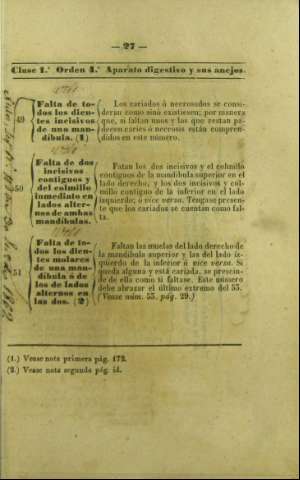 — 27 —
Clase 1.ª Orden 4.º Aparato digestivo y sus anejos.
49
Falta de to-
dos los dien-
tes incisivos
de una man-
díbula. (1)
Los cariados ó necrosados se consi-
derán como sinó existiesen; por manera
que, si faltan unos y los que restan pa-
decen caries ó necrosis están compren-
didos en este número.
50
Falta de dos
incisivos
contiguos y
del colmillo
inmediato en
lados alter-
nos de ambas
mandíbulas.
Fatan los dos incisivos y el colmillo
contiguos de la mandíbula superior en el
lado derecho, y los dos incisivos y col-
millo contiguo de la inferior en el lado
izquierdo; ó vice versa. Téngase presen-
te que los cariados se cuentan como fal-
ta.
51
Falta de to-
dos los dien-
tes molares
de una man-
díbula ó de
los de lados
alternos en
las dos. (2)
Faltan las muelas del lado derecho de
la mandíbula superior y las del lado iz-
quierdo de la inferior ó vice versa. Si
queda alguna y está cariada, se prescin-
de de ella como si faltase. Este número
debe abrazar el último extremo del 55.
(Vease núm. 55, pág. 29.)
(1.) Vease nota primera pág. 172.
(2.) Vease nota segunda pág. id.